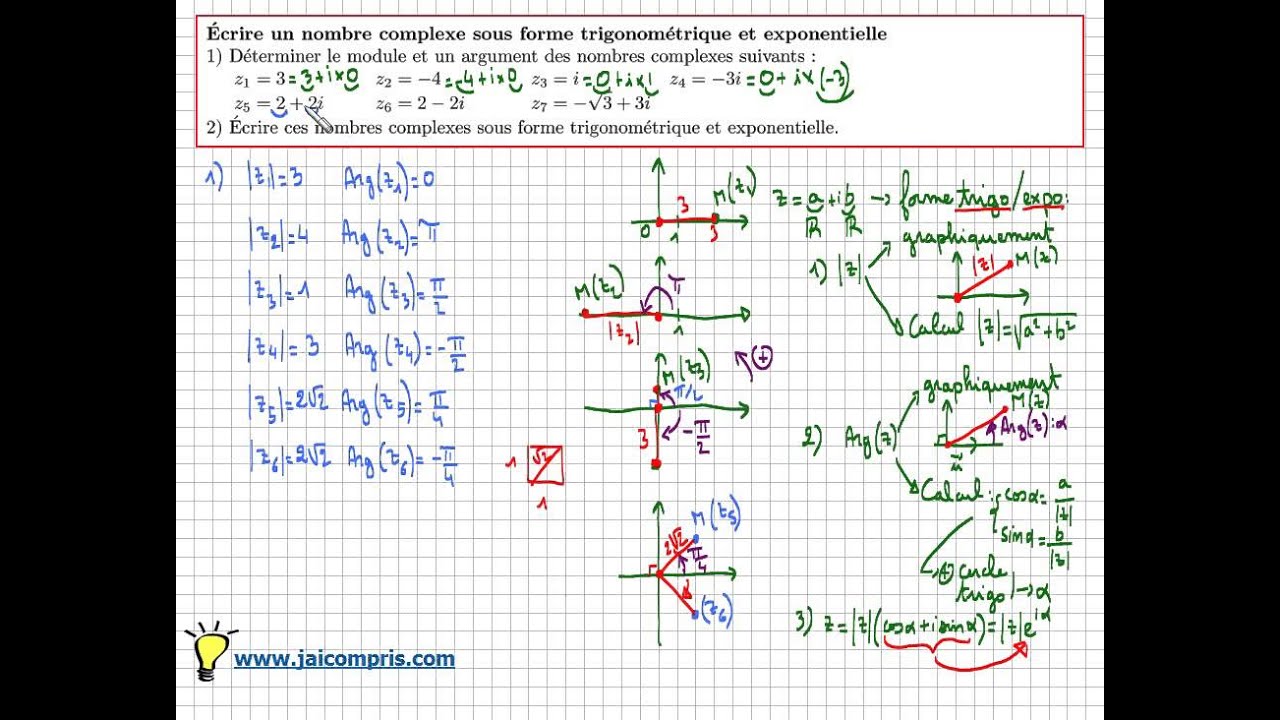 Écrire un nombre complexe sous forme trigonométrique et exponentielle
1) Déterminer le module et un argument des nombres complexes suivants :
z₁ = 3 = 3 + i×0 z₂ = −4 = −4 + i×0 z₃ = i = 0 + i×1 z₄ = −3i = 0 + i×(−3)
z₅ = 2 + 2i z₆ = 2 − 2i z₇ = −√3 + 3i
2) Écrire ces nombres complexes sous forme trigonométrique et exponentielle.
1) |z₁| = 3 Arg(z₁) = 0
|z₂| = 4 Arg(z₂) = π
|z₃| = 1 Arg(z₃) = π/2
|z₄| = 3 Arg(z₄) = −π/2
|z₅| = 2√2 Arg(z₅) = π/4
|z₆| = 2√2 Arg(z₆) = −π/4
√2
1
1
M(z₁)
3
0 1 3
M(z₂)
π
|z₂| 1
(+)
M(z₃)
π/2
3
−π/2
M(z₅)
2√2
π/4
(z₆)
z = a + ib → forme trigo/expo :
ℝ ℝ
graphiquement
1) |z|
|z| M(z)
Calcul |z| = √a² + b²
graphiquement
M(z)
2) Arg(z)
Arg(z) = α
u⃗
Calcul : { cos α = a/|z|
sin α = b/|z|
(+) cercle
trigo | → α
3) z = |z|(cos α + i sin α) = |z|e^{iα}
www.jaicompris.com